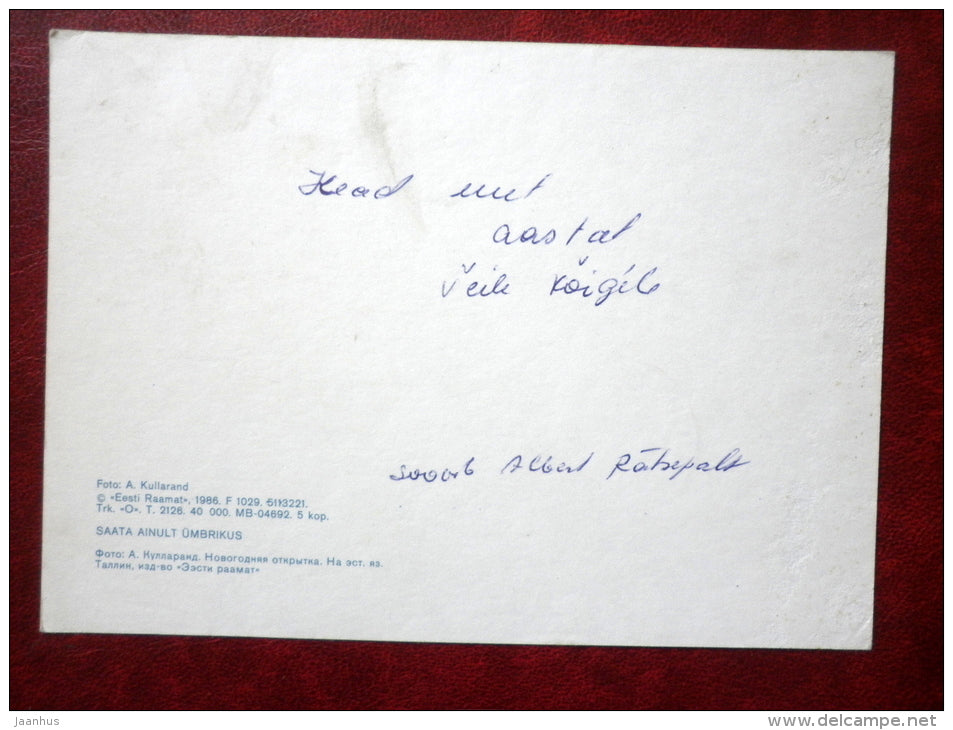 Head uut
aastat
Teile kõigile
soovib Albert Rätsepalt
Foto: A. Kullarand
© «Eesti Raamat», 1986. F 1029. 5113221.
Trk. «O». T. 2126. 40 000. MB-04692. 5 kop.
SAATA AINULT ÜMBRIKUS
Фото: А. Куллaранд. Новогодняя открытка. На эст. яз.
Таллин, изд-во «Ээсти раамат»
jaanhus
www.delcampe.net